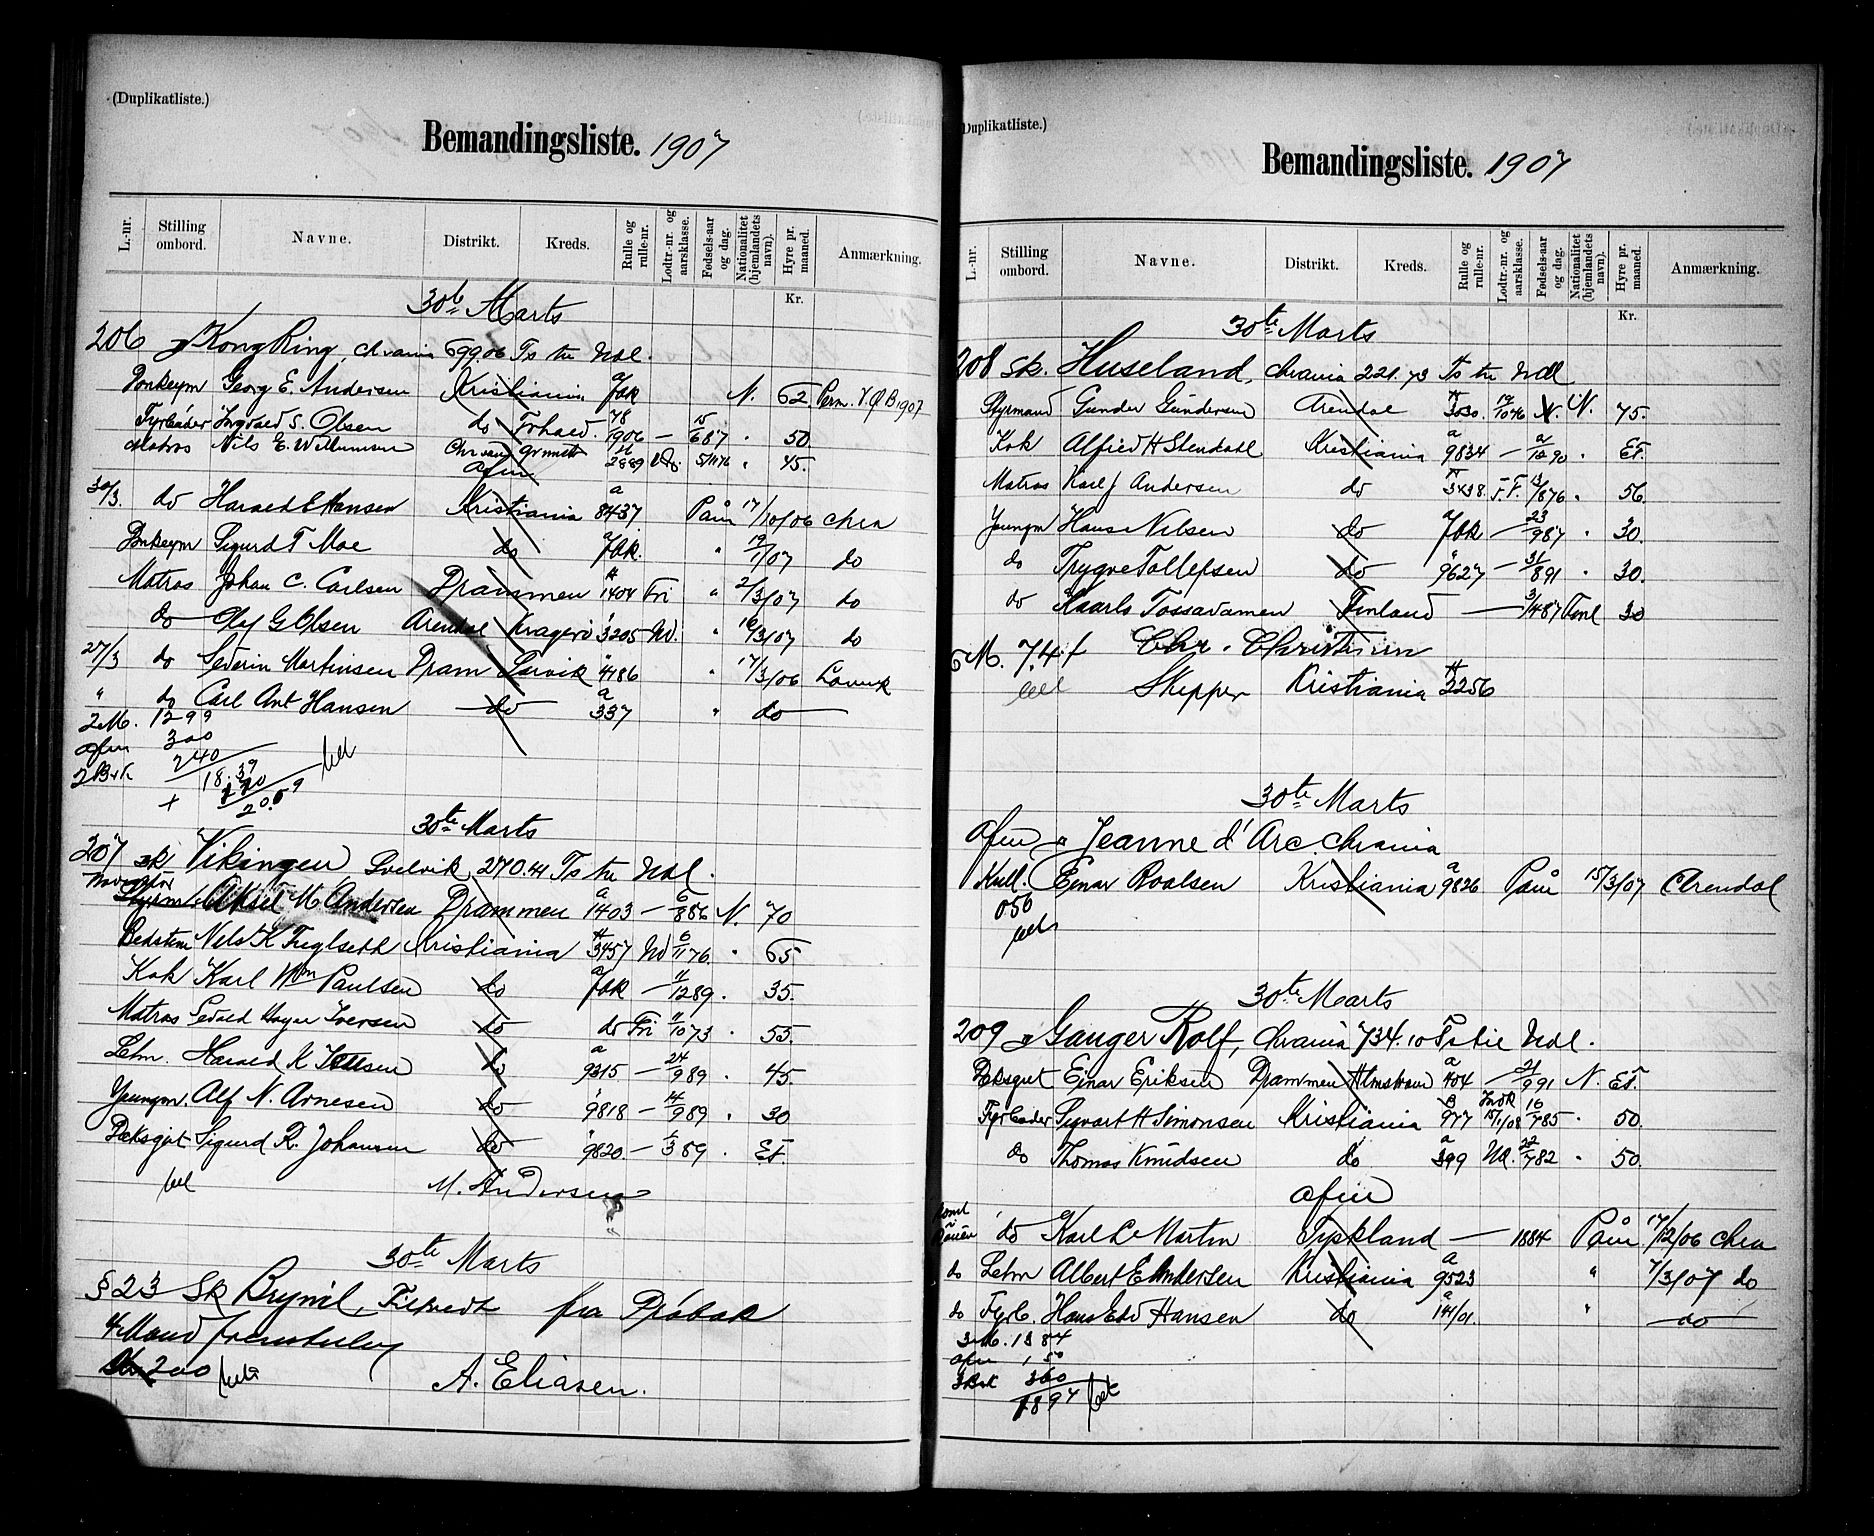 (Duplikatliste.)
Bemandingsliste. 1907
L.-nr. Stilling ombord. Navne. Distrikt. Kreds. Rulle og rulle-nr. Lodtr.-nr. og aarsklasse. Fødsels-aar og dag. Nationalitet (hjemlandets navn). Hyre pr. maaned. Anmærkning.
Kr.
30te Marts
206 Kong Ring, Chrania 699.06 Ts tn Udl.
Donkeym Georg E. Andersen Kristiania N. 62.
Fyrbøder Ingvald S. Olsen do 1906 — 15/687 " 50.
Matros Nils E. Willumsen 2889 5/1176 " 45.
Afm
30/3. do Harald E Hansen Kristiania a 8437 Paam 17/10/06 Chra
Donkeym Sigurd T Moe do " 19/1/07 do
Matros Johan C. Carlsen Drammen 1404 Fri " 2/3/07 do
do Olaf G Olsen Arendal Kragerø 3205 Ud. " 16/3/07 do
27/3 do Severin Martinsen Dram Larvik 4186 " 17/3/06 Larvik
" do Carl Ant Hansen do a 337 " do
2 M. 1299
Afm 300
240
18.39
30te Marts
207 sk Vikingen Svelvik 270.41 Ts tn Udl.
Styrm. Aksel M Andersen Drammen a 1403 — 6/886 N. 70
Bedstem Nels K Fuglseth Kristiania 3457 Ud 6/1176. " 65
Kok Karl Wm Paulsen do — 11/1289. " 35.
Matros Sedvd Hagar Iversen do do Fri 11/1073 " 55.
Letm. Harald K Jensen do a 9315 — 24/989. " 45.
Youngm. Alf N. Arnesen do 9818 — 14/989. " 30
Dæksgut Sigurd R. Johansen do 9820. — 1/389. " Et.
bet M. Andersen
30te Marts
§ 23 Sk Brynil, fra Drøbak
4 Mand
200 bet A. Eliasen.
Duplikatliste.)
Bemandingsliste. 1907
L.-nr. Stilling ombord. Navne. Distrikt. Kreds. Rulle og rulle-nr. Lodtr.-nr. og aarsklasse. Fødsels-aar og dag. Nationalitet (hjemlandets navn). Hyre pr. maaned. Anmærkning.
Kr.
30te Marts
208 Sk. Huseland, Chrania 221.73 Ts tn Udl
Styrmand Gunder Gundersen Arendal 3030. 19/1076 N. 75.
Kok Alfred H Stendahl Kristiania a 9834 — " Et.
Matros Karl J Andersen do 3438. F.F. 13/876 " 56
Youngm Hans Nilsen do — 23/987 " 30.
do Trygve Tollefsen do 9627 — 31/891 " 30.
do Kaarlo Tossavamen Finland — 3/1487 Finl 30
6 M. 7.41 Chr. Christensen
bet Skipper Kristiania 2256
30te Marts
Afm Jeanne d'Arc Chrania
Kull. Einar Roalsen Kristiania a 9826 Paam 15/3/07 Arendal
050
bet
30te Marts
209 Ganger Rolf, Chrania 734.10 Ts tie Udl.
Dæksgut Einar Eriksen Drammen Holmestrand a 404 — 21/991 N. Et.
Fyrbøder Sigvart H Simonsen Kristiania 977 15/1/08 16/785 " 50.
do Thomas Knudsen do a 399 Ud. 22/782 " 50.
Afm
do Karl L Martin Tyskland — 1884 Paam 17/12/06 Chra
do Letm Albert E Andersen Kristiania a 9523 " 7/3/07 do
do Fyrb. Hans Edv Hansen do a 141/01. " do
3 M. 1384
Afm 150
360
1894 bet